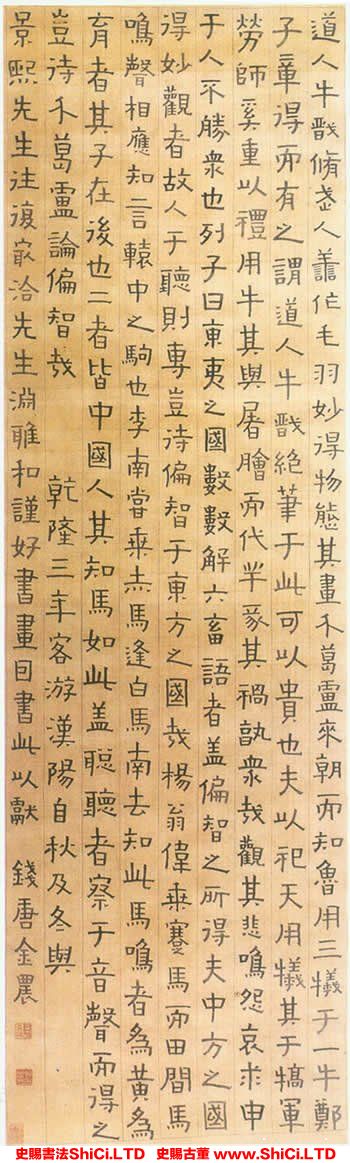 道人牛戩脩老人蕭佗毛羽妙得物態其畫不葛盧來朝而知魯用三犧于一牛鄭
子章得而有之謂道人牛戩絕筆于此可以貴也夫以祀天用犧其于犒軍
勞師奚重以禮用牛其與屠膾而代羊豕其禍孰衆哉觀其悲鳴怨哀求申
于人不勝衆也列子曰東夷之國數數解六畜語者蓋偏智之所得夫中方之國
得妙觀者故人于聽則專豈待偏智于東方之國哉楊翁偉乘蹇馬而田間馬
鳴聲相應知言轅中之駒也李南嘗乘赤馬逢白馬南去知此馬鳴者為黃為
育者其子在後也二者皆中國人其知馬如此盖聰聽者察于音聲而得之
豈待不葛盧論偏智哉 乾隆三年客游漢陽自秋及冬與
景熙先生往復最洽先生淵雅和謹好書畫因書此以獻 錢唐金農
史賜書法ShiCi.LTD 史賜古董 www.ShiCi.LTD